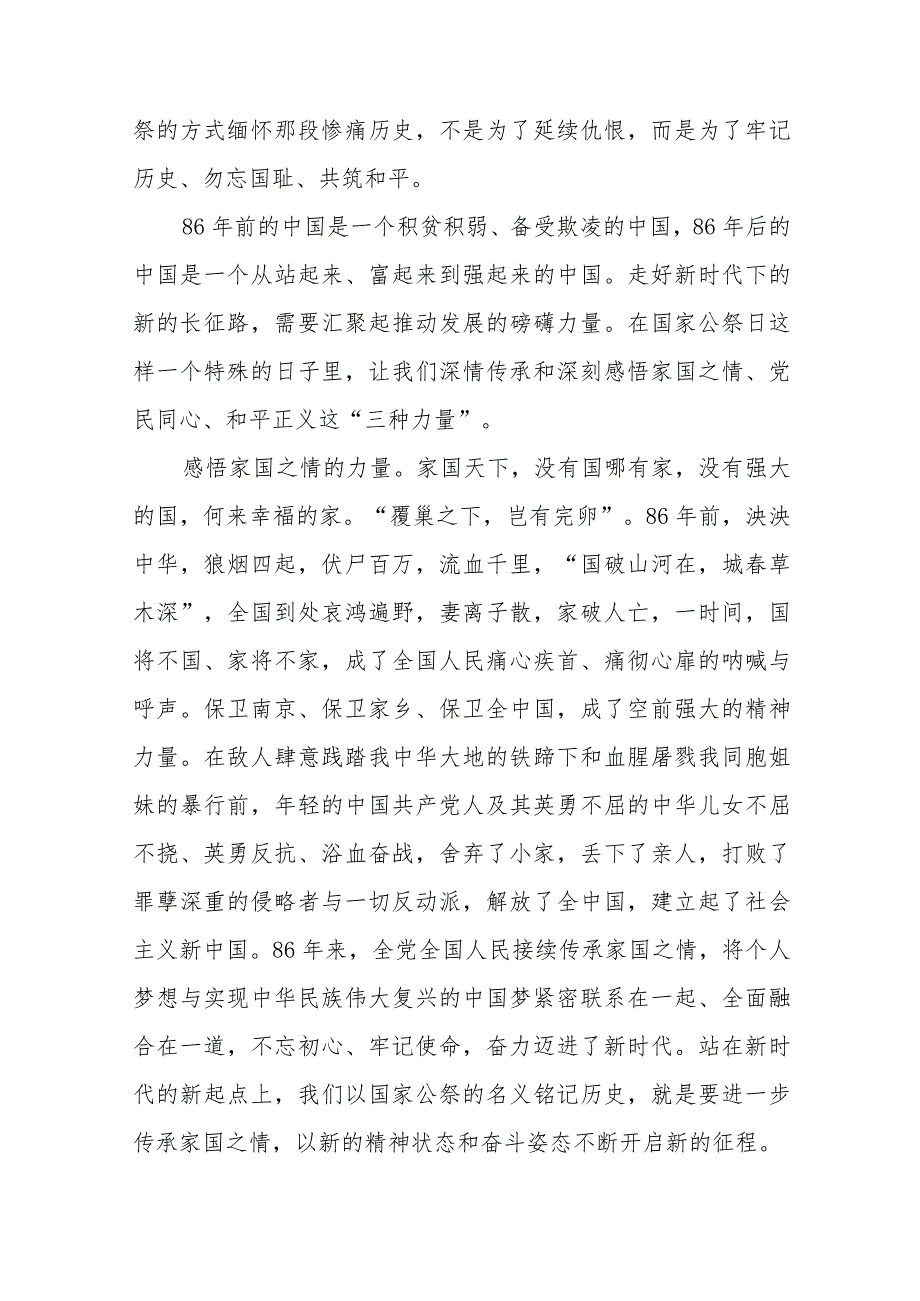 祭的方式缅怀那段惨痛历史，不是为了延续仇恨，而是为了牢记
历史、勿忘国耻、共筑和平。
86 年前的中国是一个积贫积弱、备受欺凌的中国，86 年后的
中国是一个从站起来、富起来到强起来的中国。走好新时代下的
新的长征路，需要汇聚起推动发展的磅礴力量。在国家公祭日这
样一个特殊的日子里，让我们深情传承和深刻感悟家国之情、党
民同心、和平正义这“三种力量”。
感悟家国之情的力量。家国天下，没有国哪有家，没有强大
的国，何来幸福的家。“覆巢之下，岂有完卵”。86 年前，泱泱
中华，狼烟四起，伏尸百万，流血千里，“国破山河在，城春草
木深”，全国到处哀鸿遍野，妻离子散，家破人亡，一时间，国
将不国、家将不家，成了全国人民痛心疾首、痛彻心扉的呐喊与
呼声。保卫南京、保卫家乡、保卫全中国，成了空前强大的精神
力量。在敌人肆意践踏我中华大地的铁蹄下和血腥屠戮我同胞姐
妹的暴行前，年轻的中国共产党人及其英勇不屈的中华儿女不屈
不挠、英勇反抗、浴血奋战，舍弃了小家，丢下了亲人，打败了
罪孽深重的侵略者与一切反动派，解放了全中国，建立起了社会
主义新中国。86 年来，全党全国人民接续传承家国之情，将个人
梦想与实现中华民族伟大复兴的中国梦紧密联系在一起、全面融
合在一道，不忘初心、牢记使命，奋力迈进了新时代。站在新时
代的新起点上，我们以国家公祭的名义铭记历史，就是要进一步
传承家国之情，以新的精神状态和奋斗姿态不断开启新的征程。